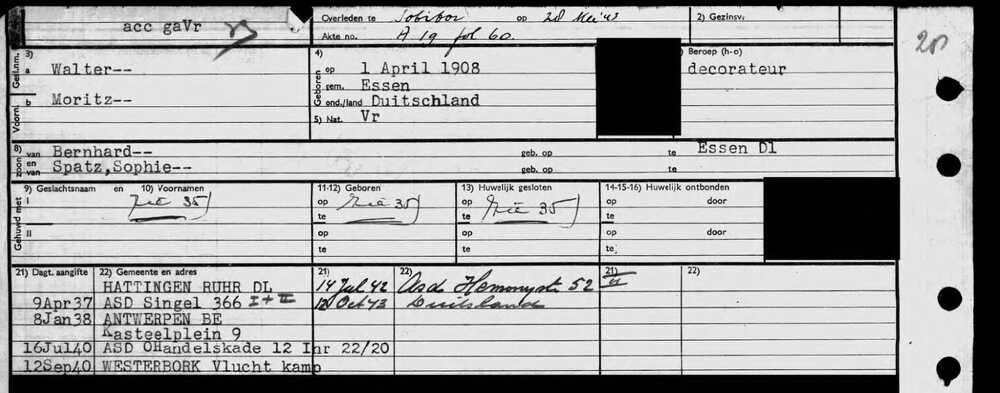 acc gaVr
Overleden te Sobibor op 28 Mei '43
2) Gezinsv.
Akte no. A 19 fol 60.
3)
Gesl.nm.
a Walter--
Voorn.
b Moritz--
4)
Geboren
op 1 April 1908
gem. Essen
ond./land Duitschland
5) Nat. Vr
Beroep (h-o)
decorateur
8) zoon van Bernhard-- geb. op te Essen Dl
en van Spatz,Sophie-- geb. op te
Gehuwd met
9) Geslachtsnaam en 10) Voornamen
11-12) Geboren
13) Huwelijk gesloten
14-15-16) Huwelijk ontbonden
I zie 35) op zie 35) op zie 35) op door
te te te
II op op op door
te te te
21) Dagt. aangifte 22) Gemeente en adres 21) 22) 21) 22)
HATTINGEN RUHR DL 14 Jul 42 Asd Hemonystr 52 II
9Apr37 ASD Singel 366 I + II Oct 43 Duitsland
8Jan38 ANTWERPEN BE
Kasteelplein 9
16Jul40 ASD OHandelskade 12 Inr 22/20
12Sep40 WESTERBORK Vlucht kamp